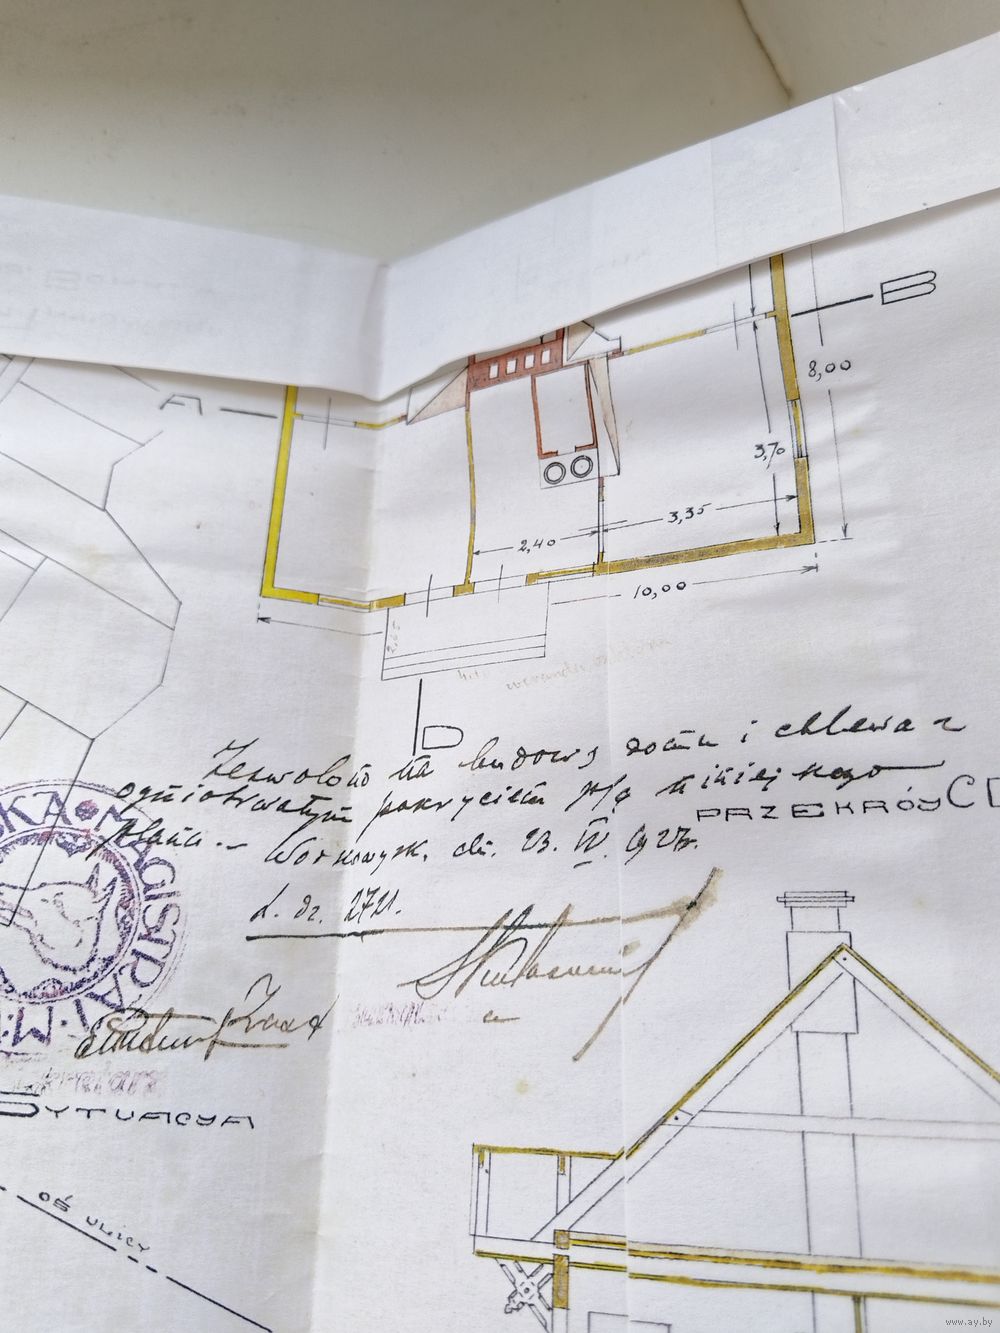 B
A
8,00
3,70
3,35
2,40
10,00
2.65
weranda
D
Zezwolono na budowę domu i chlewa z
ogniotrwałym pokryciem p/g niniejszego
planu.- Wołkowysk, dn. 23. IV. 1927r.
PRZEKRÓJ CD
L. dz. 2721.
MAGISTRAT M.
Sekretarz
SYTUACYA
OŚ ULICY
www.ay.by